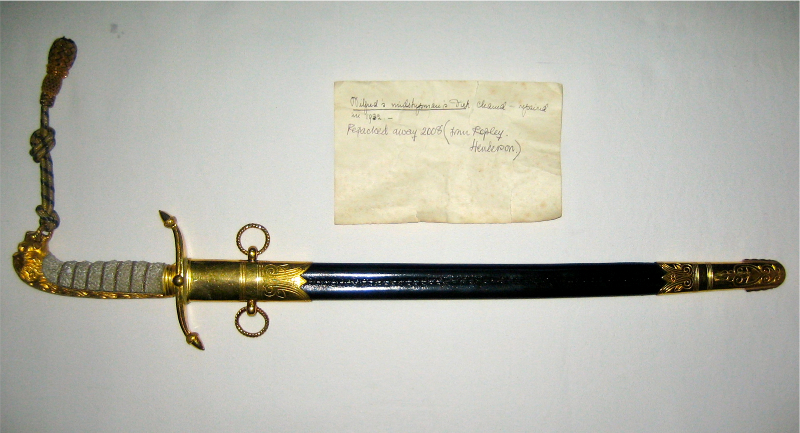 Wilfred's midshipman's Dirk, cleaned -
in 1922 -
Repacked away 2008 (Ann Ropley.
Henderson.)